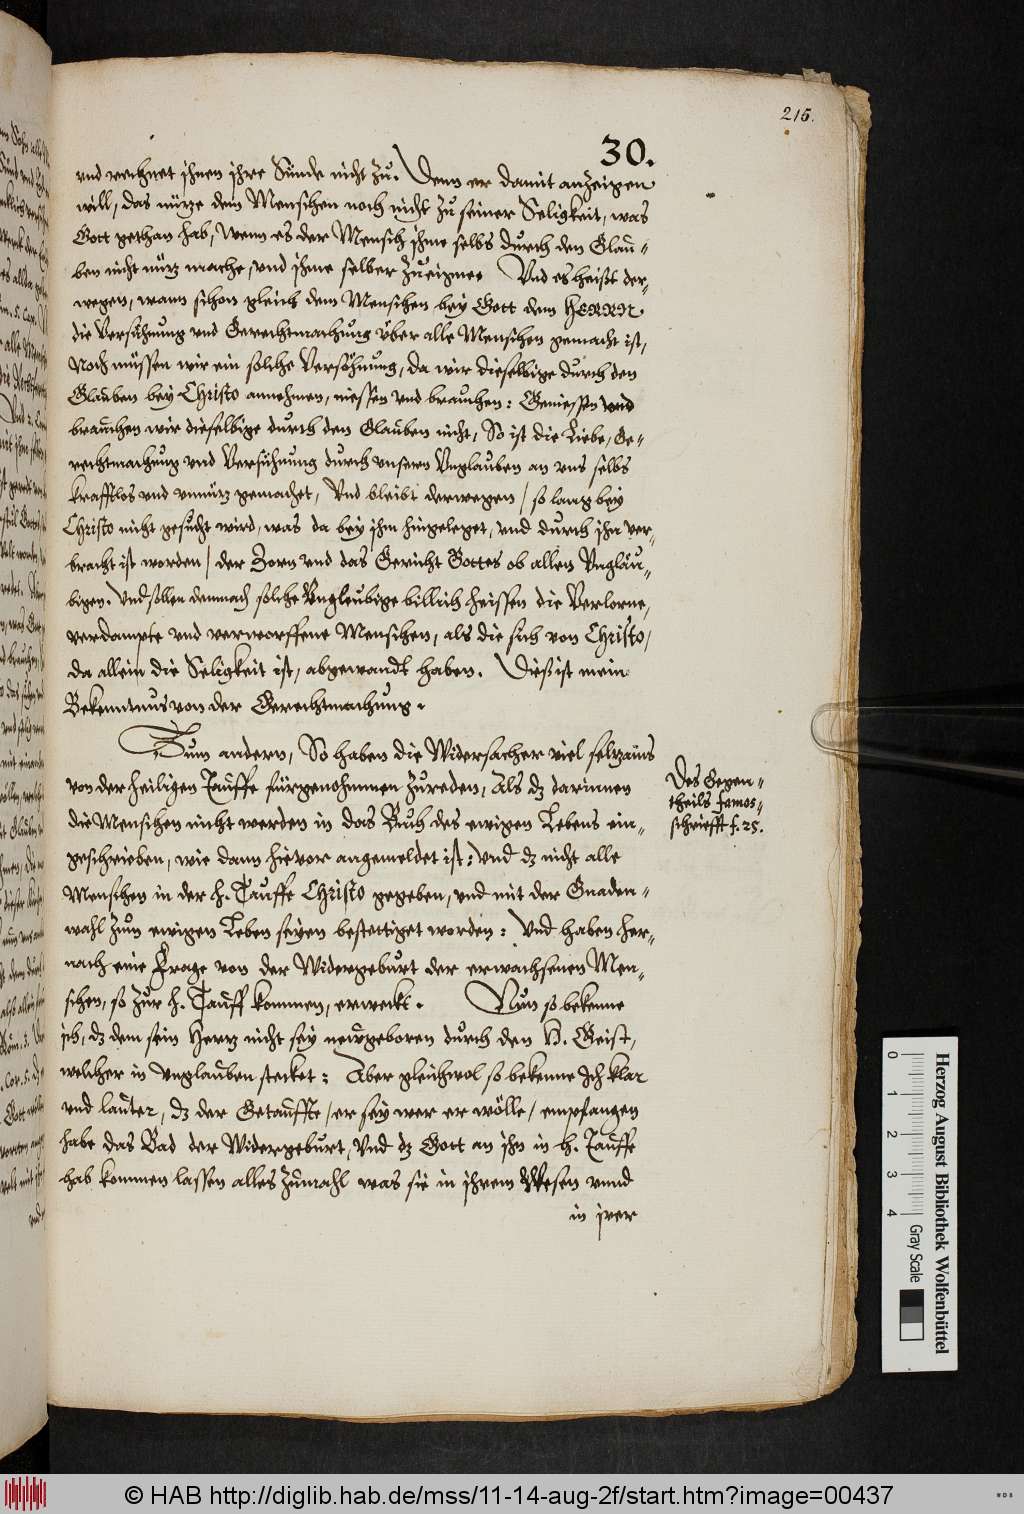 215.
30.
vnd rechnet ihnen ihre Sünde nicht zu. Denn er damit anzeigen
will, das nütze dem Menschen noch nicht zu seiner Seligkeit, was
Gott gethan hab, Wenn es der Mensch ihme selbs durch den Glau-
ben nicht nütz mache, vnd ihme selber zueigne. Vnd es heißt der-
wegen, wann schon gleich dem Menschen bey Gott dem HERRN
die Versühnung vnd Gerechtmachung über alle Menschen gemacht ist,
Noch müssen wir ein solche Versöhnung, da wir dieselbige durch den
Glauben bey Christo annehmen, niessen vnd brauchen: Geniessen vnd
brauchen wir dieselbige durch den Glauben nicht, So ist die Liebe, Ge-
rechtmachung vnd Versühnung durch vnsern Vnglauben an vns selbs
krafftlos vnd vnnütz gemachet, Vnd bleibt derwegen / so lang bey
Christo nicht gesucht wird, was da bey ihm hingeleget, vnd durch ihn ver-
bracht ist worden / der Zorn vnd das Gericht Gottes ob allen Vngläu-
bigen. Vnd sollen demnach solche Vngleubige billich heissen die Verlorne,
verdampte vnd verworffene Menschen, als die sich von Christo,
da allein die Seligkeit ist, abgewandt haben. Dieß ist mein
Bekenntnus von der Gerechtmachung.
Zum andern, So haben die Widersacher viel seltzams
von der heiligen Tauffe fürgenohmmen zureden, Als dz darinnen
die Menschen nicht werden in das Buch des ewigen Lebens ein-
geschrieben, wie dann hievor angemeldet ist: Vnd dz nicht alle
Menschen in der h. Tauffe Christo gegeben, vnd mit der Gnaden-
wahl zum ewigen Leben seyen bestettiget worden: Vnd haben her-
nach eine Frage von der Widergeburt der erwachsenen Men-
schen, so zur h. Tauff kommen, erweckt. Nun so bekenne
ich, dz dem sein Hertz nicht sey neugeboren durch den H. Geist,
welcher in Vnglauben stecket: Aber gleichwol so bekenne Ich klar
vnd lauter, dz der Getauffte / er sey wer er wölle / empfangen
habe das Bad der Widergeburt, Vnd dz Gott an ihn in h. Tauffe
hab kommen lassen alles zumahl was sie in ihrem Wesen vnnd
in irer
Des Gegen-
theils famos-
schriefft f. 25.
0 1 2 3 4
Herzog August Bibliothek Wolfenbüttel
Gray Scale
© HAB http://diglib.hab.de/mss/11-14-aug-2f/start.htm?image=00437